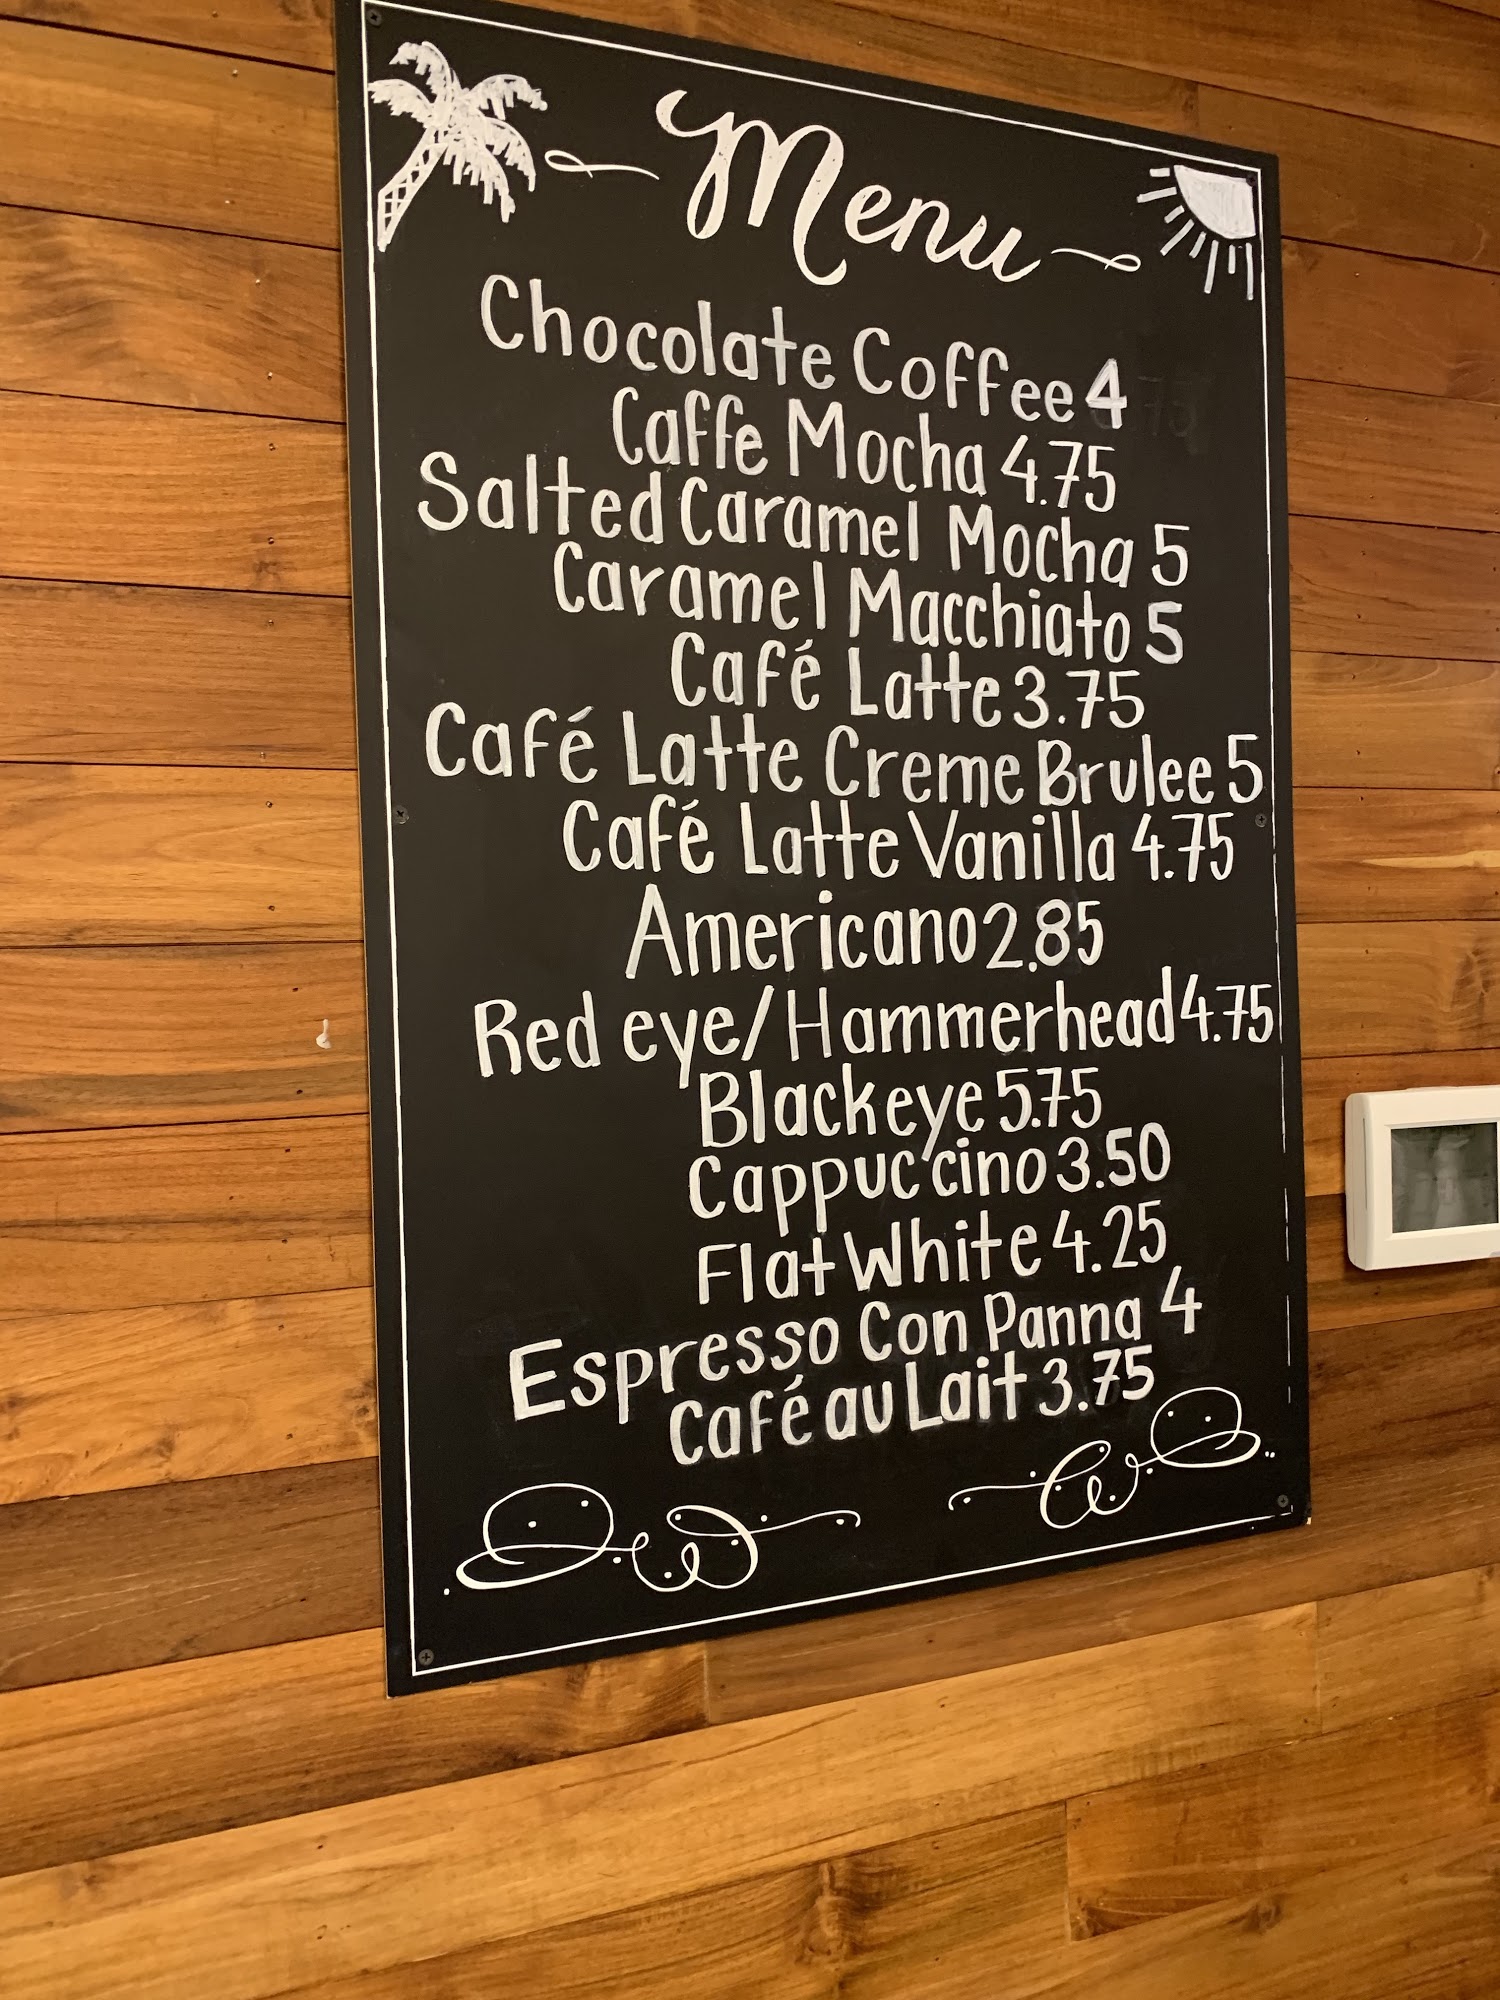 Menu
Chocolate Coffee 4
Caffe Mocha 4.75
Salted Caramel Mocha 5
Caramel Macchiato 5
Café Latte 3.75
Café Latte Creme Brulee 5
Café Latte Vanilla 4.75
Americano 2.85
Red eye/Hammerhead 4.75
Blackeye 5.75
Cappuccino 3.50
Flat White 4.25
Espresso Con Panna 4
Café au Lait 3.75